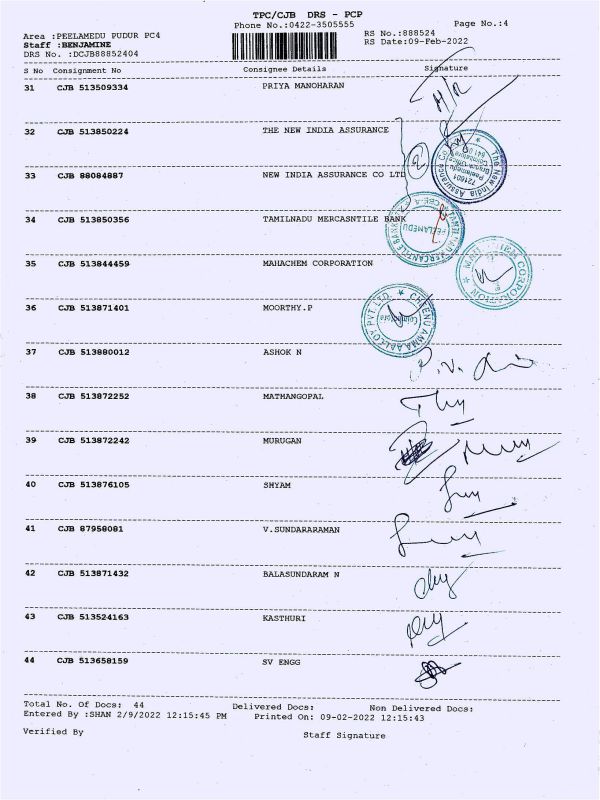 TPC/CJB DRS - PCP
Phone No.:0422-3505555 Page No.:4
Area :PEELAMEDU PUDUR PC4 RS No.:888524
Staff :BENJAMINE RS Date:09-Feb-2022
DRS No. :DCJB88852404
S No Consignment No Consignee Details Signature
31 CJB 513509334 PRIYA MANOHARAN
32 CJB 513850224 THE NEW INDIA ASSURANCE
33 CJB 88084887 NEW INDIA ASSURANCE CO LTD
34 CJB 513850356 TAMILNADU MERCASNTILE BANK
35 CJB 513844459 MAHACHEM CORPORATION
36 CJB 513871401 MOORTHY.P
37 CJB 513880012 ASHOK N
38 CJB 513872252 MATHANGOPAL
39 CJB 513872242 MURUGAN
40 CJB 513876105 SHYAM
41 CJB 87958081 V.SUNDARARAMAN
42 CJB 513871432 BALASUNDARAM N
43 CJB 513524163 KASTHURI
44 CJB 513658159 SV ENGG
Total No. Of Docs: 44 Delivered Docs: Non Delivered Docs:
Entered By :SHAN 2/9/2022 12:15:45 PM Printed On: 09-02-2022 12:15:43
Verified By Staff Signature